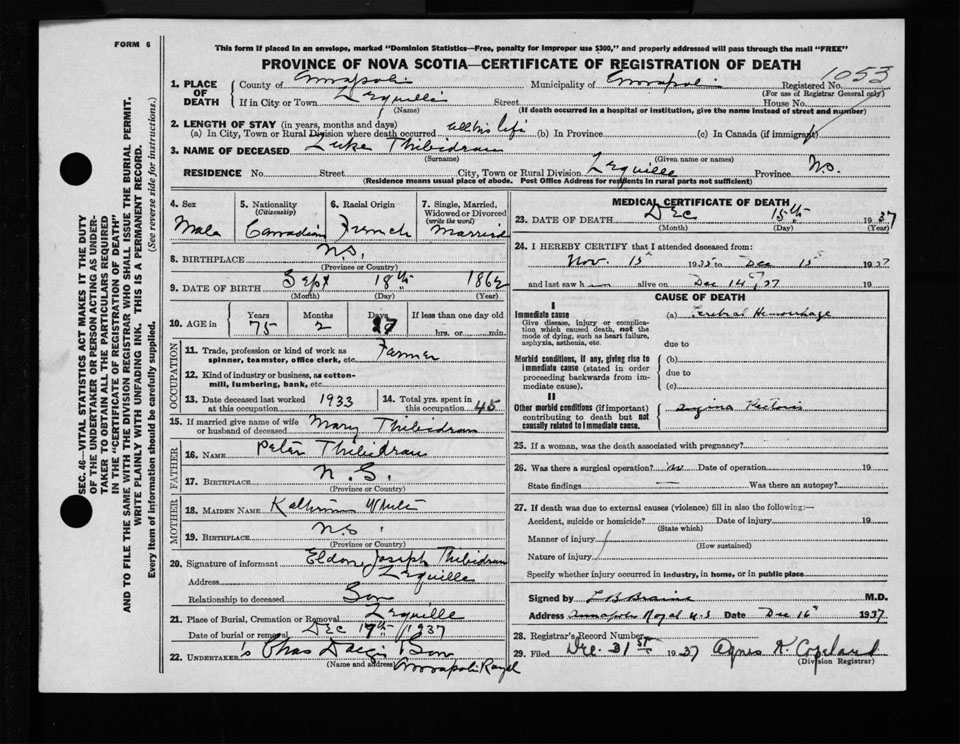 FORM 6
This form if placed in an envelope, marked "Dominion Statistics—Free, penalty for improper use $300," and properly addressed will pass through the mail "FREE"
PROVINCE OF NOVA SCOTIA—CERTIFICATE OF REGISTRATION OF DEATH
1053
1. PLACE OF DEATH County of Annapolis Municipality of Annapolis Registered No.
(For use of Registrar General only)
If in City or Town Lequille Street House No.
(Name) (If death occurred in a hospital or institution, give the name instead of street and number)
2. LENGTH OF STAY (in years, months and days)
(a) In City, Town or Rural Division where death occurred all his life (b) In Province (c) In Canada (if immigrant)
3. NAME OF DECEASED Luke Thibidrau
(Surname) (Given name or names)
RESIDENCE No. Street City, Town or Rural Division Lequille Province N.S.
(Residence means usual place of abode. Post Office Address for repents in rural parts not sufficient)
4. Sex 5. Nationality (Citizenship) 6. Racial Origin 7. Single, Married, Widowed or Divorced (write the word)
Male Canadian French Married
8. BIRTHPLACE N.S.
(Province or Country)
9. DATE OF BIRTH Sept 18th 1862
(Month) (Day) (Year)
10. AGE in Years Months Days If less than one day old
75 2 27 hrs. or min.
OCCUPATION
11. Trade, profession or kind of work as spinner, teamster, office clerk, etc. Farmer
12. Kind of industry or business, as cotton-mill, lumbering, bank, etc.
13. Date deceased last worked at this occupation 1933 14. Total yrs. spent in this occupation 45
15. If married give name of wife or husband of deceased Mary Thibidrau
FATHER
16. Name Peter Thibidrau
17. Birthplace N.S.
(Province or Country)
MOTHER
18. Maiden Name White
19. Birthplace N.S.
(Province or Country)
20. Signature of informant Eldon Joseph Thibidrau
Address Lequille
Relationship to deceased Son
21. Place of Burial, Cremation or Removal Lequille
Date of burial or removal Dec 17th 1937
22. Undertaker's Chas Son
(Name and address) Annapolis Royal
MEDICAL CERTIFICATE OF DEATH
23. DATE OF DEATH Dec 15th 1937
(Month) (Day) (Year)
24. I HEREBY CERTIFY that I attended deceased from:
Nov. 15 1935 to Dec 15 1937
and last saw him alive on Dec 14, 37
CAUSE OF DEATH
I
Immediate cause (a) Cerebral Hemorrhage
Give disease, injury or complication which caused death, not the mode of dying, such as heart failure, asphyxia, asthenia, etc.
due to
Morbid conditions, if any, giving rise to immediate cause (stated in order proceeding backwards from immediate cause).
(b)
due to
(c)
II
Other morbid conditions (if important) contributing to death but not causally related to immediate cause.
Angina Pectoris
25. If a woman, was the death associated with pregnancy?
26. Was there a surgical operation? no Date of operation 19
State findings — Was there an autopsy?
27. If death was due to external causes (violence) fill in also the following:—
Accident, suicide or homicide? Date of injury 19
(State which)
Manner of injury
(How sustained)
Nature of injury
Specify whether injury occurred in industry, in home, or in public place
Signed by L B Braine M.D.
Address Annapolis Royal N.S Date Dec 16 1937
28. Registrar's Record Number
29. Filed Dec. 31st 1937 Agnes K. Copeland
(Division Registrar)
SEC. 46—VITAL STATISTICS ACT MAKES IT THE DUTY
OF THE UNDERTAKER OR PERSON ACTING AS UNDERTAKER TO OBTAIN ALL THE PARTICULARS REQUIRED
IN THE "CERTIFICATE OF REGISTRATION OF DEATH"
AND TO FILE THE SAME WITH THE DIVISION REGISTRAR WHO SHALL ISSUE THE BURIAL PERMIT.
WRITE PLAINLY WITH UNFADING INK. THIS IS A PERMANENT RECORD.
Every item of information should be carefully supplied. (See reverse side for instructions.)